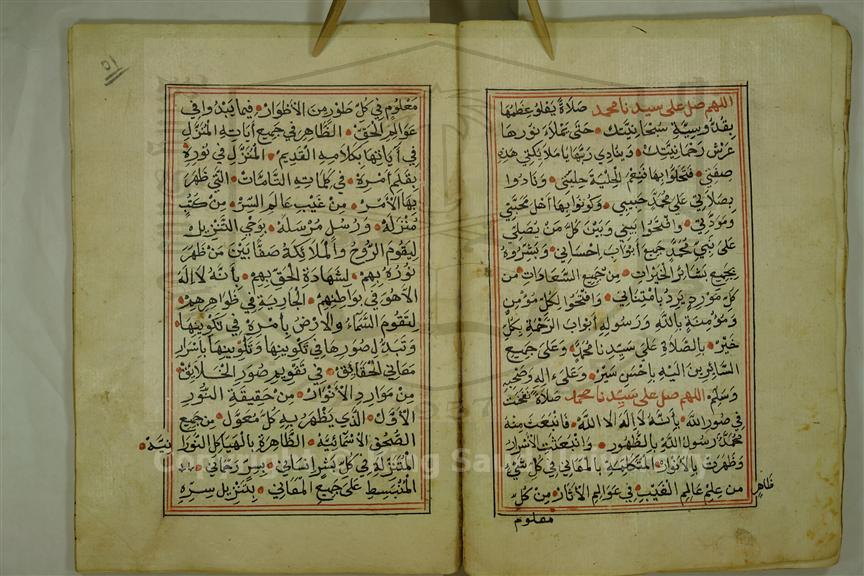 اللهم صل على سيدنا محمد صلاة يعلو عظمها
بقدوسية سبحانيتك حتى تملأ نورها
عرش رحمانيتك وينادي ربها يا ملائكتي هذه
صفتي فتحلوا بها فنعم الحلية حليتي ونادوا
بصلاتي على محمد حبيبي وكونوا بها اهل محبتي
ومودتي وافتحوا بيني وبين كل من يصلي
على نبيي محمد جميع ابواب احساني وبشروه
بجميع بشائر الخيرات من جميع السعادات من
كل مورد يرد بامتناني وافتحوا لكل مؤمن
ومؤمنة بالله ورسوله ابواب الرحمة بكل
خير بالصلاة على سيدنا محمد وعلى جميع
السائرين اليه باحسن سير وعلى اله وصحبه
وسلم اللهم صل على سيدنا محمد صلاة نفخت
في صور الله بأنه لا اله الا الله فانبعث منه
محمد رسول الله بالظهور وانبعثت الاسرار
وظهرت بالانوار المتكلمة بالمعاني في كل شيء
ظاهر من علم عالم الغيب في عوالم الاثار من كل
معلوم
٥١
معلوم في كل طور من الاطوار فيما يبدوا في
عوالم الحق الظاهر في جميع آياته المنزل
في آياتها بكلامه القديم المنزل في نوره
بقلم امره في كلماته التامات التي ظهر
بها الامر من غيب عالم السر من كتب
منزلة ورسل مرسلة بوحي التنزيل
ليقوم الروح والملائكة صفا بين من ظهر
نوره بهم لشهادة الحق بهم بأنه لا اله
الا هو في بواطنهم الجارية في ظواهرهم
لتقوم السماء والارض بامره في تكوينها
وتبدل صورها في تكوينها وتلوينها باسرار
معاني الحقائق في تقويم صور الخلائق
من موارد الانوار من حقيقة النور
الاول الذي يظهر به كل معول من جميع
الصحف الاسمائية الظاهرة بالهياكل النورانية
المتنزلة في كل بشر انساني بسر رحماني
المنبسط على جميع المعاني بتنزيل سره
Copyright © King Saud University